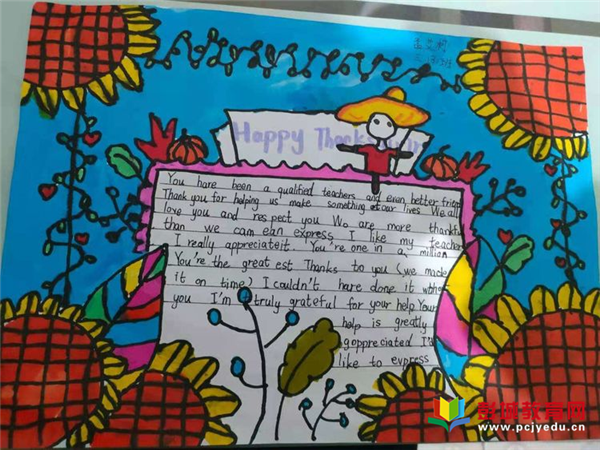 Happy Thanksgivin
You have been a qualified teachers and even better frien
Thank you for helping us make something of our lives We all
love you and respect you We are more thankful
than we can ean express I like my teacher
I really appreciateit. You're one in a million
You're the great est Thanks to you (we made
it on time) I couldn't have done it without
you I'm truly grateful for your help Your
help is greatly
goppreciated I'd
like to express
彭城教育网
www.pcjyedu.cn